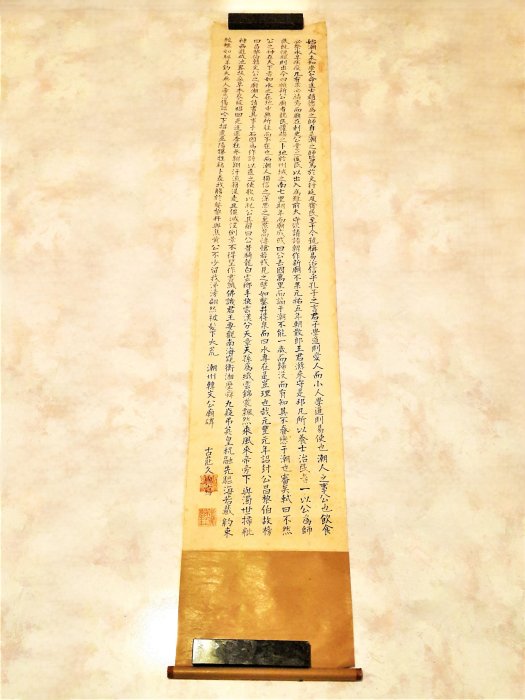 始潮人未知學公命進士趙德為之師自是潮之士皆篤於文行延及齊民至于今號稱易治信乎孔子之言君子學道則愛人而小人學道則易使也潮人之事公也飲食
必祭水旱疾疫凡有求必禱焉而廟在刺史公堂之後民以出入為艱前太守欲請諸朝作新廟不果元祐五年朝散郎王君滌來守是邦凡所以養士治民者一以公為師
民既悅服則出令曰願新公廟者聽民讙趨之卜地於州城之南七里期年而廟成或曰公去國萬里而謫于潮不能一歲而歸沒而有知其不眷戀于潮也審矣軾曰不然
公之神在天下者如水之在地中無所往而不在也而潮人獨信之深思之至焄蒿悽愴若或見之譬如鑿井得泉而曰水專在是豈理也哉元豐元年詔封公昌黎伯故榜
曰昌黎伯韓文公之廟潮人請書其事于石因為作詩以遺之使歌以祀公其辭曰公昔騎龍白雲鄉手抉雲漢分天章天孫為織雲錦裳飄然乘風來帝旁下與濁世掃秕
糠西遊咸池略扶桑草木衣被昭回光追逐李杜參翱翔汗流籍湜走且僵滅沒倒景不得望作書詆佛譏君王要觀南海窺衡湘歷舜九疑弔英皇祝融先驅海若藏約束
蛟鱷如驅羊鈞天無人帝悲傷謳吟下招遣巫陽犦牲雞卜羞我觴於粲荔丹與蕉黃公不少留我涕滂翩然被髮下大荒 潮州韓文公廟碑
古莊久